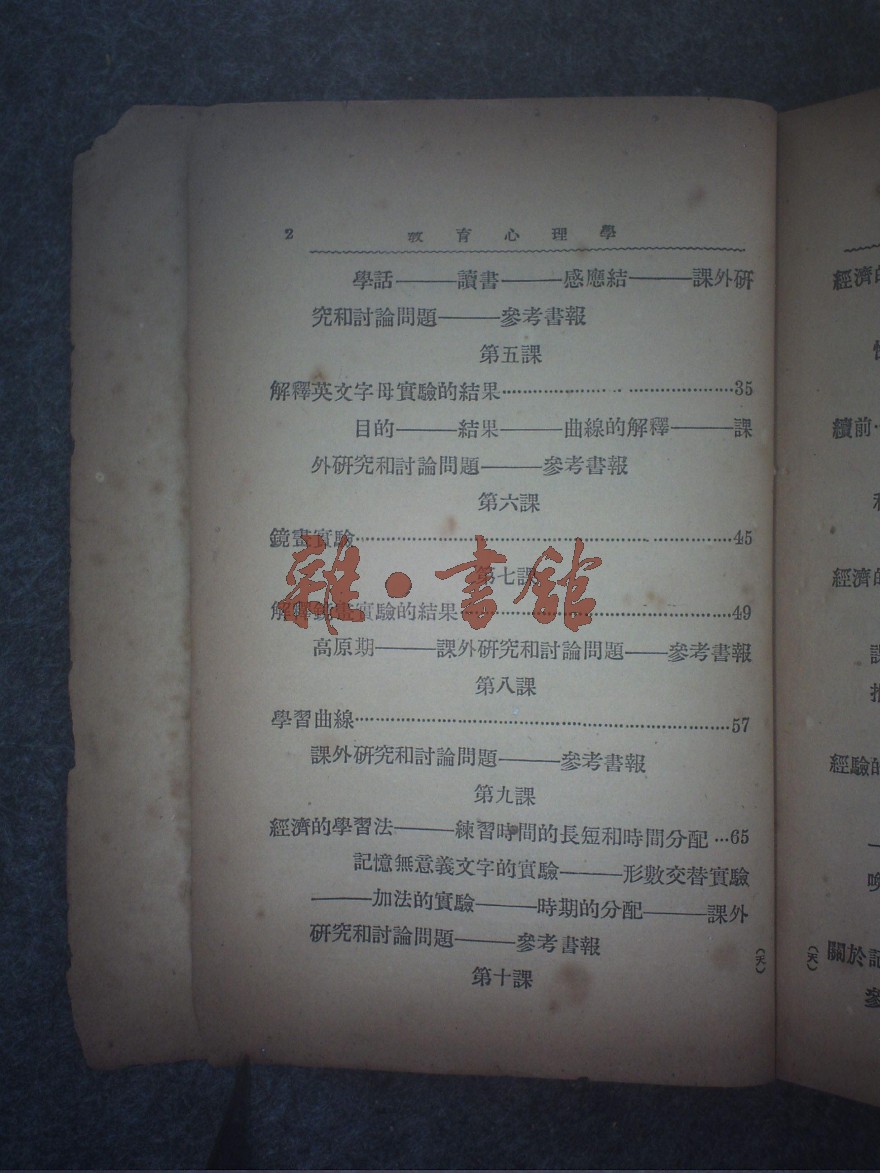 2 教育心理學
學話———讀書———感應結———課外研
究和討論問題———參考書報
第五課
解釋英文字母實驗的結果……………………………35
目的———結果———曲線的解釋———課
外研究和討論問題———參考書報
第六課
鏡畫實驗……………………………………………45
第七課
解釋鏡畫實驗的結果………………………………49
高原期———課外研究和討論問題——參考書報
第八課
學習曲線……………………………………………57
課外研究和討論問題———參考書報
第九課
經濟的學習法———練習時間的長短和時間分配…65
記憶無意義文字的實驗———形數交替實驗
———加法的實驗———時期的分配———課外
研究和討論問題———參考書報
第十課
(天)
雜·書館
經濟的
續前…
經濟的
經驗的
(天)
關於記